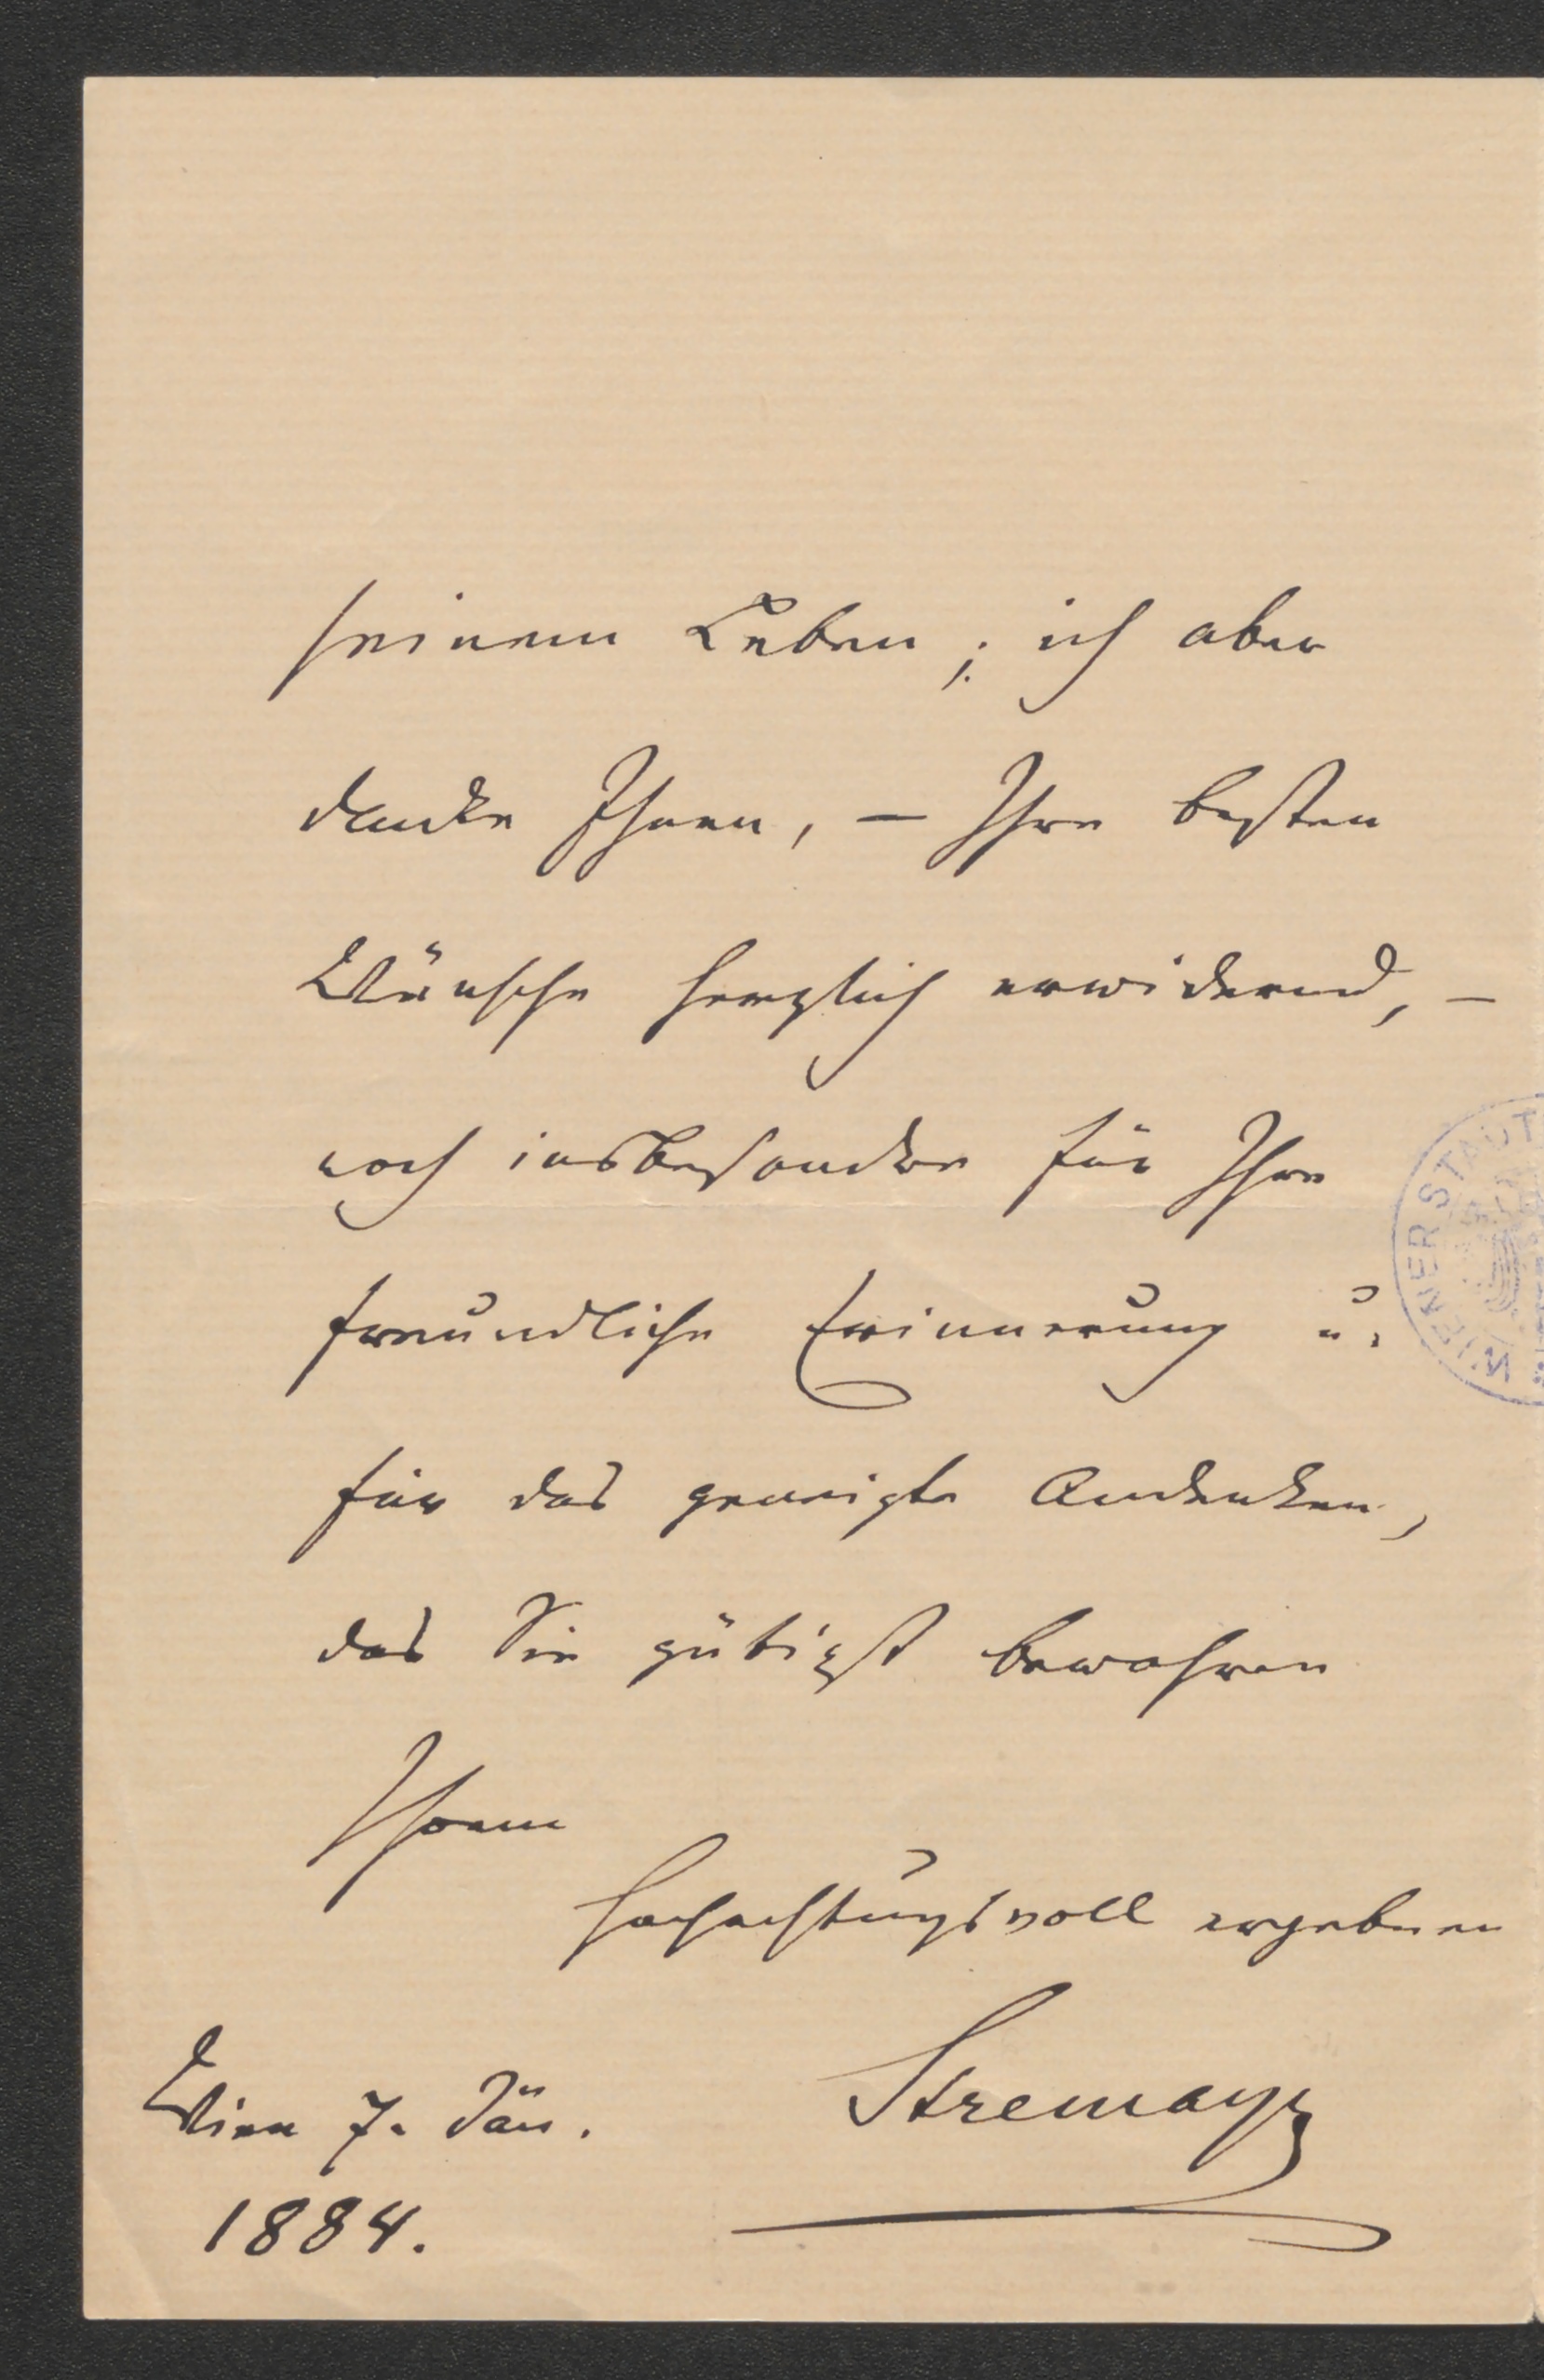 seinem Leben; ich aber
danke Ihnen, – Ihre besten
Wünsche herzlich erwidernd, –
noch insbesondre für Ihre
freundliche Erinnerung u.
für das geneigte Andenken,
das Sie gütigst bewahren
Ihrem
hochachtungsvoll ergebnen
Stremayr
Wien 7. Jän.
1884.
WIENER STADT